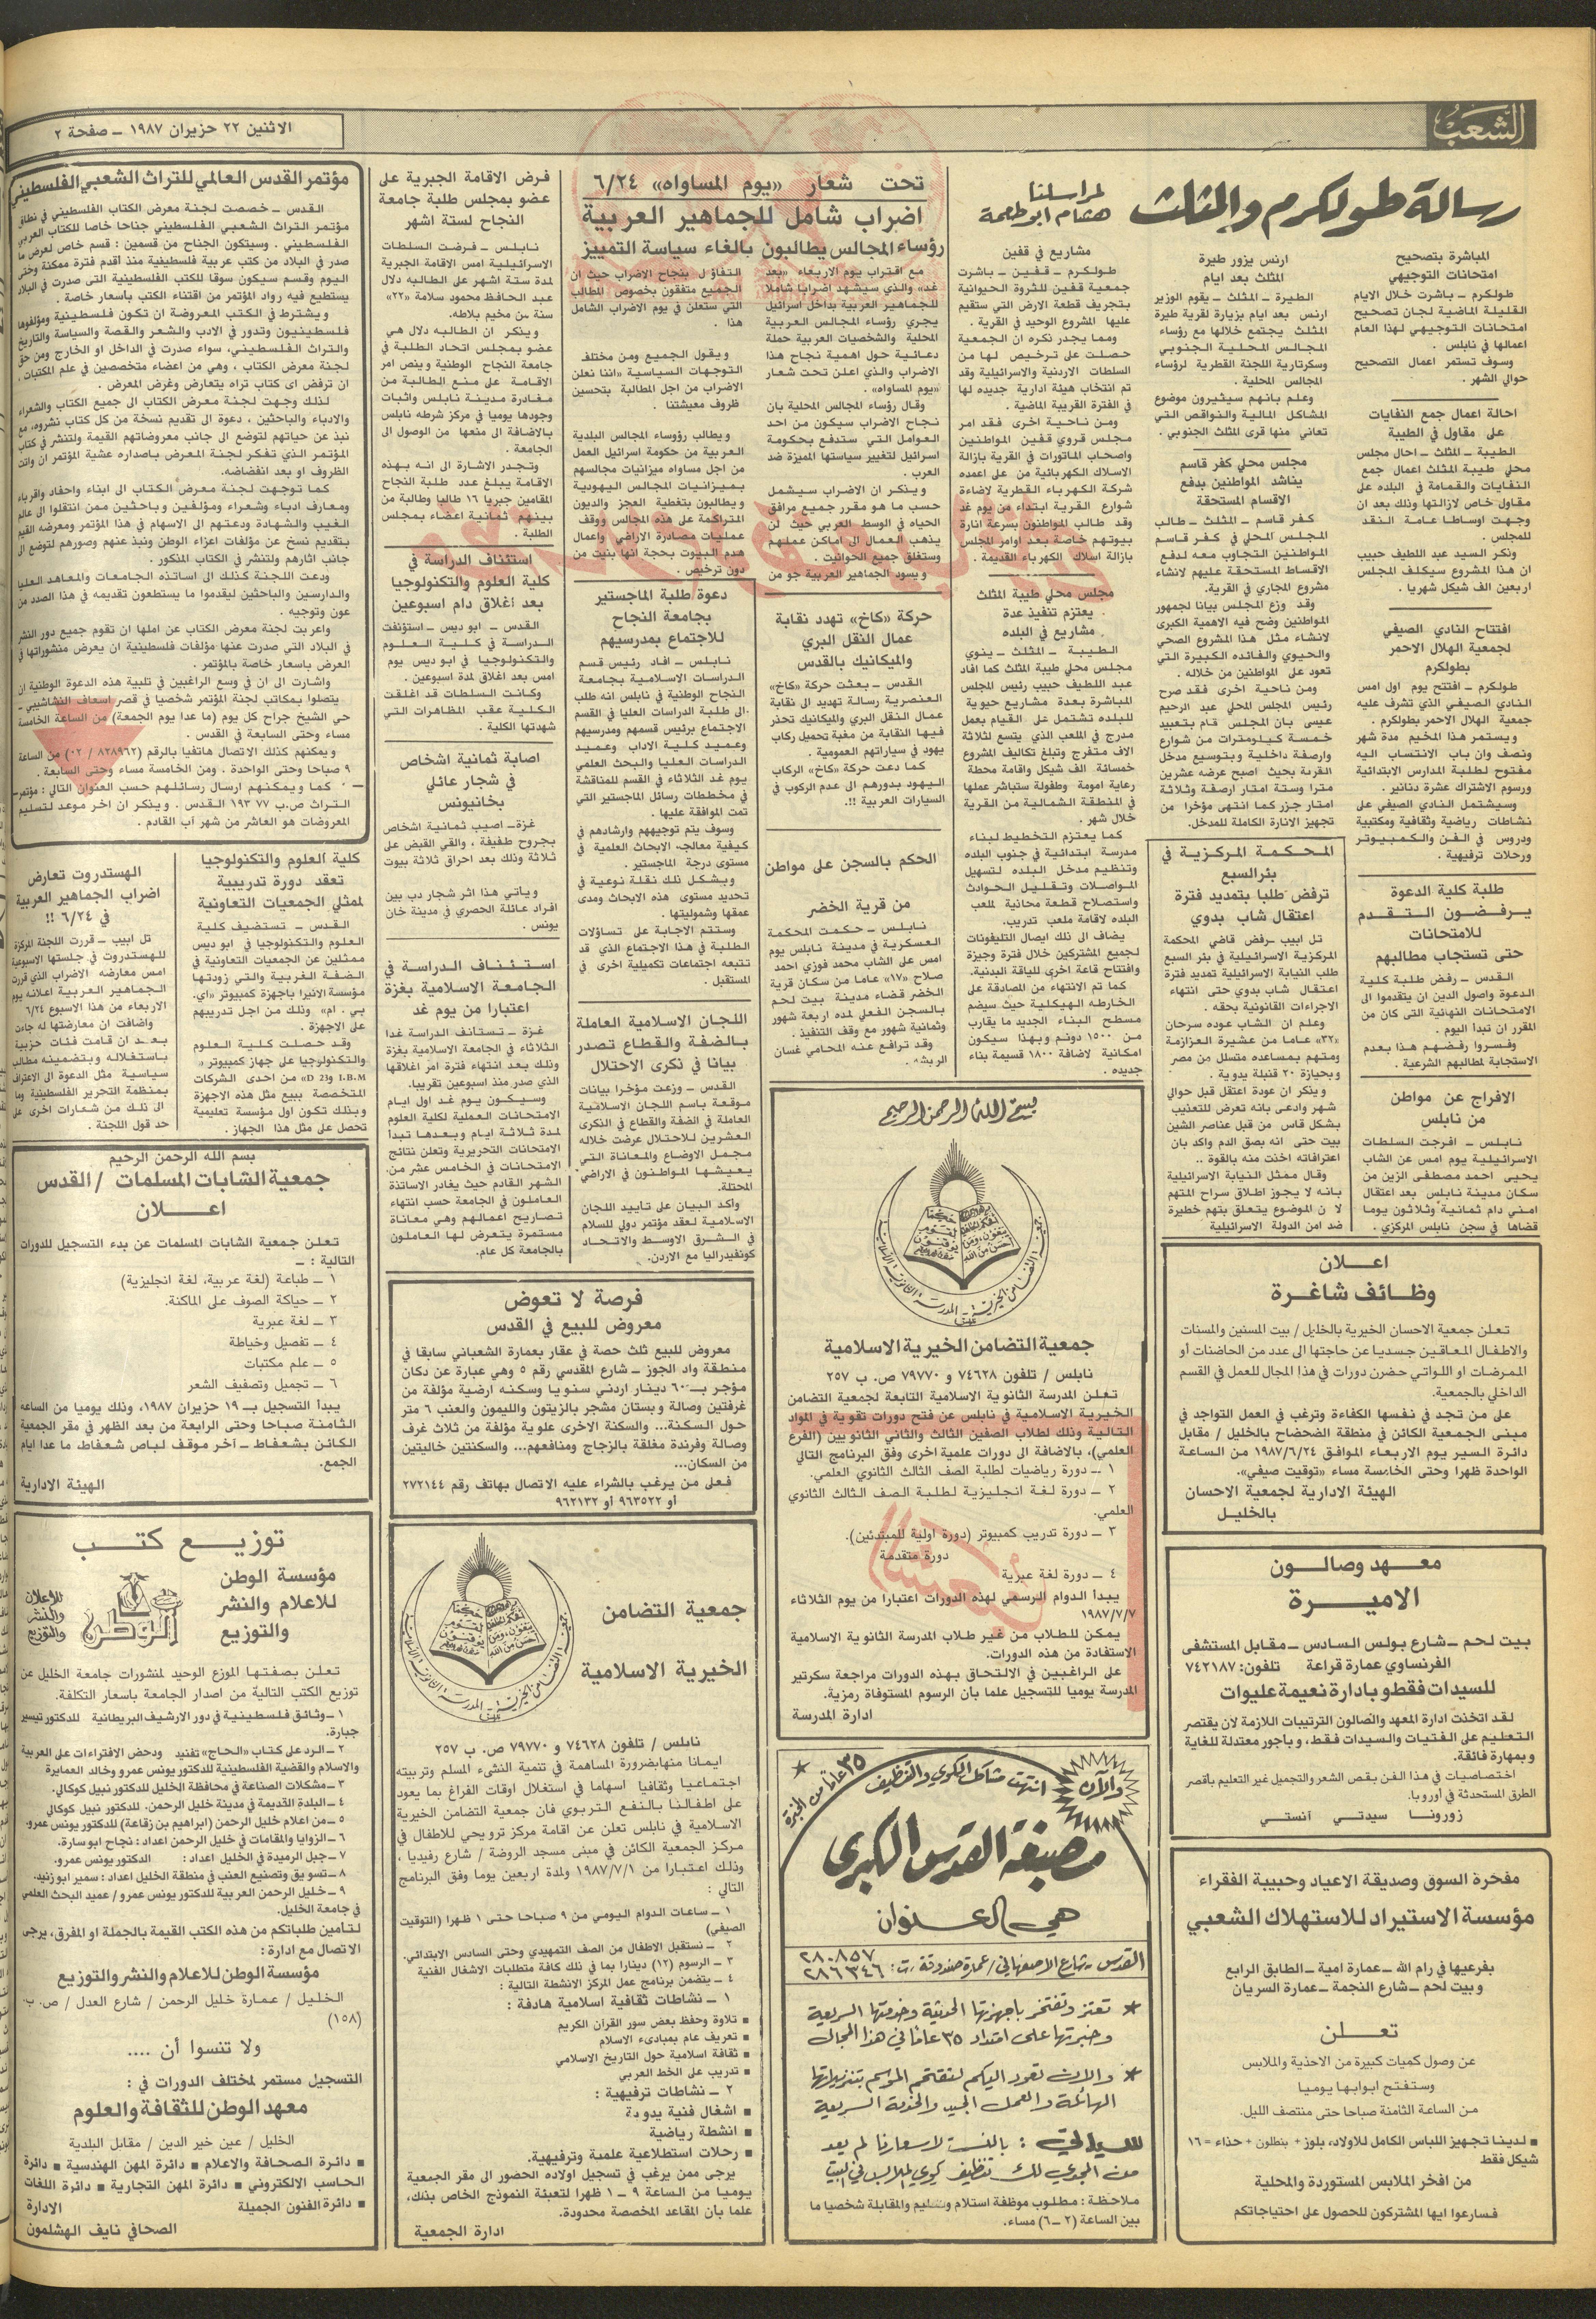 الشعب
الاثنين ٢٢ حزيران ١٩٨٧ ـ صفحة ٢
رسالة طولكرم والمثلث
لمراسلنا
هشام ابو طعمة
المباشرة بتصحيح
امتحانات التوجيهي
طولكرم ـ باشرت خلال الايام
القليلة الماضية لجان تصحيح
امتحانات التوجيهي لهذا العام
اعمالها في نابلس .
وسوف تستمر اعمال التصحيح
حوالي الشهر .
احالة اعمال جمع النفايات
على مقاول في الطيبة
الطيبة ـ المثلث ـ احال مجلس
محلي طيبة المثلث اعمال جمع
النفايات والقمامة في البلده على
مقاول خاص لازالتها وذلك بعد ان
وجهت اوساطا عامة النقد
للمجلس .
وذكر السيد عبد اللطيف حبيب
ان هذا المشروع سيكلف المجلس
اربعين الف شيكل شهريا .
افتتاح النادي الصيفي
لجمعية الهلال الاحمر
بطولكرم
طولكرم ـ افتتح يوم اول امس
النادي الصيفي الذي تشرف عليه
جمعية الهلال الاحمر بطولكرم .
ويستمر هذا المخيم مدة شهر
ونصف وان باب الانتساب اليه
مفتوح لطلبة المدارس الابتدائية
ورسوم الاشتراك عشرة دنانير .
وسيشتمل النادي الصيفي على
نشاطات رياضية وثقافية ومكتبية
ودروس في الفن والكمبيوتر
ورحلات ترفيهية .
طلبة كلية الدعوة
يرفضون التقدم
للامتحانات
حتى تستجاب مطالبهم
القدس ـ رفض طلبة كلية
الدعوة واصول الدين ان يتقدموا الى
الامتحانات النهائية التى كان من
المقرر ان تبدأ اليوم .
وفسروا رفضهم هذا بعدم
الاستجابة لمطالبهم الشرعية .
الافراج عن مواطن
من نابلس
نابلس ـ افرجت السلطات
الاسرائيلية يوم امس عن الشاب
يحيى احمد مصطفى الزين من
سكان مدينة نابلس بعد اعتقال
امني دام ثمانية وثلاثون يوما
قضاها في سجن نابلس المركزي .
ارنس يزور طيرة
المثلث بعد ايام
الطيرة ـ المثلث ـ يقوم الوزير
ارنس بعد ايام بزيارة لقرية طيرة
المثلث يجتمع خلالها مع رؤساء
المجالس المحلية الجنوبي
وسكرتارية اللجنة القطرية لرؤساء
المجالس المحلية .
وعلم بانهم سيثيرون موضوع
المشاكل المالية والنواقص التي
تعاني منها قرى المثلث الجنوبي .
مجلس محلي كفر قاسم
يناشد المواطنين بدفع
الاقسام المستحقة
كفر قاسم ـ المثلث ـ طالب
المجلس المحلي في كفر قاسم
المواطنين التجاوب معه لدفع
الاقساط المستحقة عليهم لانشاء
مشروع المجاري في القرية.
وقد وزع المجلس بيانا لجمهور
المواطنين وضح فيه الاهمية الكبرى
لانشاء مثل هذا المشروع الصحي
والحيوي والفائده الكبيرة التي
تعود على المواطنين من خلاله .
ومن ناحية اخرى فقد صرح
رئيس المجلس المحلي عبد الرحيم
عيسى بان المجلس قام بتعبيد
خمسة كيلومترات من شوارع
وارصفة داخلية وبتوسيع مدخل
القرية بحيث اصبح عرضه عشرين
مترا وستة امتار ارصفة وثلاثة
امتار جزر كما انتهى مؤخرا من
تجهيز الانارة الكاملة للمدخل.
المحكمة المركزية في
بئر السبع
ترفض طلبا بتمديد فترة
اعتقال شاب بدوي
تل ابيب ـ رفض قاضي المحكمة
المركزية الاسرائيلية في بئر السبع
طلب النيابة الاسرائيلية تمديد فترة
اعتقال شاب بدوي حتى انتهاء
الاجراءات القانونية بحقه .
وعلم ان الشاب عوده سرحان
«٣٢» عاما من عشيرة العزازمة
ومتهم بمساعده متسلل من مصر
وبحيازة ٢٠ قنبلة يدوية .
ويذكر ان عودة اعتقل قبل حوالي
شهر وادعى بانه تعرض للتعذيب
بشكل قاس من قبل عناصر الشين
بيت حتى انه بصق الدم واكد بان
اعترافاته اخذت منه بالقوة ..
وقال ممثل النيابة الاسرائيلية
بانه لا يجوز اطلاق سراح المتهم
لان الموضوع يتعلق بتهم خطيرة
ضد امن الدولة الاسرائيلية
مشاريع في قفين
طولكرم ـ قفين ـ باشرت
جمعية قفين للثروة الحيوانية
بتجريف قطعة الارض التي ستقيم
عليها المشروع الوحيد في القرية .
ومما يجدر ذكره ان الجمعية
حصلت على ترخيص لها من
السلطات الاردنية والاسرائيلية وقد
تم انتخاب هيئة ادارية جديده لها
في الفترة القريبة الماضية .
ومن ناحية اخرى فقد امر
مجلس قروي قفين المواطنين
واصحاب الماتورات في القرية بازالة
الاسلاك الكهربائية من على اعمده
شركة الكهرباء القطرية لاضاءة
شوارع القرية ابتداء من يوم غد
وقد طالب المواطنون بسرعة انارة
بيوتهم خاصة بعد اوامر المجلس
بازالة اسلاك الكهرباء القديمة .
مجلس محلي طيبة المثلث
يعتزم تنفيذ عدة
مشاريع في البلده
الطيبة ـ المثلث ـ ينوي
مجلس محلي طيبة المثلث كما افاد
عبد اللطيف حبيب رئيس المجلس
المباشرة بعدة مشاريع حيوية
للبلده تشتمل على القيام بعمل
مدرج في الملعب الذي يتسع لثلاثة
الاف متفرج وتبلغ تكاليف المشروع
خمسائة الف شيكل واقامة محطة
رعاية امومة وطفولة ستباشر عملها
في المنطقة الشمالية من القرية
خلال شهر .
كما يعتزم التخطيط لبناء
مدرسة ابتدائية في جنوب البلده
وتنظيم مدخل البلده لتسهيل
المواصلات وتقليل الحوادث
واستصلاح قطعة محانية لملعب
البلده لاقامة ملعب تدريب.
يضاف الى ذلك ايصال التليفونات
لجميع المشتركين خلال فترة وجيزة
وافتتاح قاعة اخرى للياقة البدنية.
كما تم الانتهاء من المصادقة على
الخارطه الهيكلية حيث سيضم
مسطح البناء الجديد ما يقارب
من ١٥٠٠ دونم وبهذا سيكون
امكانية لاضافة ١٨٠٠ قسيمة بناء
جديده .
تحت شعار «يوم المساواه» ٦/٢٤
اضراب شامل للجماهير العربية
رؤساء المجالس يطالبون بالغاء سياسة التمييز
مع اقتراب يوم الاربعاء «بعد
غد» والذي سيشهد اضرابا شاملا
للجماهير العربية بداخل اسرائيل
يجري رؤساء المجالس العربية
المحلية والشخصيات العربية حملة
دعائية حول اهمية نجاح هذا
الاضراب والذي اعلن تحت شعار
«يوم المساواه» .
وقال رؤساء المجالس المحلية بان
نجاح الاضراب سيكون من احد
العوامل التي ستدفع بحكومة
اسرائيل لتغيير سياستها المميزة ضد
العرب .
ويذكر ان الاضراب سيشمل
حسب ما هو مقرر جميع مرافق
الحياه في الوسط العربي حيث لن
يذهب العمال الى اماكن عملهم
وستغلق جميع الحوانيت .
ويسود الجماهير العربية جو من
التفاؤل بنجاح الاضراب حيث ان
الجميع متفقون بخصوص المطالب
التي ستعلن في يوم الاضراب الشامل
هذا .
ويقول الجميع ومن مختلف
التوجهات السياسية «اننا نعلن
الاضراب من اجل المطالبة بتحسين
ظروف معيشتنا .
ويطالب رؤوساء المجالس البلدية
العربية من حكومة اسرائيل العمل
من اجل مساواه ميزانيات مجالسهم
بميزانيات المجالس اليهودية
ويطالبون بتغطية العجز والديون
المتراكمة على هذه المجالس ووقف
عمليات مصادرة الاراضي واعمال
هدم البيوت بحجة انها بنيت من
دون ترخيص .
حركة «كاخ» تهدد نقابة
عمال النقل البري
والميكانيك بالقدس
القدس ـ بعثت حركة «كاخ»
العنصرية رسالة تهديد الى نقابة
عمال النقل البري والميكانيك تحذر
فيها النقابة من مغبة تحميل ركاب
يهود في سياراتهم العمومية .
كما دعت حركة «كاخ» الركاب
اليهود بدورهم الى عدم الركوب في
السيارات العربية !!.
الحكم بالسجن على مواطن
من قرية الخضر
نابلس ـ حكمت المحكمة
العسكرية في مدينة نابلس يوم
امس على الشاب محمد فوزي احمد
صلاح «١٧» عاما من سكان قرية
الخضر قضاء مدينة بيت لحم
بالسجن الفعلي لمده اربعة شهور
وثمانية شهور مع وقف التنفيذ .
وقد ترافع عنه المحامي غسان
دعوة طلبة الماجستير
بجامعة النجاح
للاجتماع بمدرسيهم
نابلس ـ افاد رئيس قسم
الدراسات الاسلامية بجامعة
النجاح الوطنية في نابلس انه طلب
الى طلبة الدراسات العليا في القسم
الاجتماع برئيس قسمهم ومدرسيهم
وعميد كلية الاداب وعميد
الدراسات العليا والبحث العلمي
يوم غد الثلاثاء في القسم للمناقشة
في مخططات رسائل الماجستير التي
تمت الموافقة عليها .
وسوف يتم توجيههم وارشادهم في
كيفية معالجة الابحاث العلمية في
مستوى درجة الماجستير .
ويشكل ذلك نقلة نوعية في
تحديد مستوى هذه الابحاث ومدى
عمقها وشموليتها .
وستتم الاجابة على تساؤلات
الطلبة في هذا الاجتماع الذي قد
تتبعه اجتماعات تكميلية اخرى في
المستقبل .
اللجان الاسلامية العاملة
بالضفة والقطاع تصدر
بيانا في ذكرى الاحتلال
القدس ـ وزعت مؤخرا بيانات
موقعة باسم اللجان الاسلامية
العاملة في الضفة والقطاع في الذكرى
العشرين للاحتلال عرضت خلاله
مجمل الاوضاع والمعاناة التي
يعيشها المواطنون في الاراضي
المحتلة.
واكد البيان على تاييد اللجان
الاسلامية لعقد مؤتمر دولي للسلام
في الشرق الاوسط والاتحاد
كونفيدراليا مع الاردن.
فرض الاقامة الجبرية على
عضو بمجلس طلبة جامعة
النجاح لستة اشهر
نابلس ـ فرضت السلطات
الاسرائيلية امس الاقامة الجبرية
لمدة ستة اشهر على الطالبه دلال
عبد الحافظ محمود سلامة «٢٢»
سنة من مخيم بلاطه.
ويذكر ان الطالبه دلال هي
عضو بمجلس اتحاد الطلبة في
جامعة النجاح الوطنية وينص امر
الاقامة على منع الطالبة من
مغادرة مدينة نابلس واثبات
وجودها يوميا في مركز شرطه نابلس
بالاضافة الى منعها من الوصول الى
الجامعة .
وتجدر الاشارة الى انه بهذه
الاقامة يبلغ عدد طلبة النجاح
المقامين جبريا ١٦ طالبا وطالبة من
بينهم ثمانية اعضاء بمجلس
الطلبة .
استئناف الدراسة في
كلية العلوم والتكنولوجيا
بعد اغلاق دام اسبوعين
القدس ـ ابو ديس ـ استؤنفت
الدراسة في كلية العلوم
والتكنولوجيا في ابو ديس يوم
امس بعد اغلاق لمدة اسبوعين .
وكانت السلطات قد اغلقت
الكلية عقب المظاهرات التي
شهدتها الكلية .
اصابة ثمانية اشخاص
في شجار عائلي
بخانيونس
غزة ـ اصيب ثمانية اشخاص
بجروح طفيفة ، والقي القبض على
ثلاثة وذلك بعد احراق ثلاثة بيوت
ويأتي هذا اثر شجار دب بين
افراد عائلة الحصري في مدينة خان
يونس .
استئناف الدراسة في
الجامعة الاسلامية بغزة
اعتبارا من يوم غد
غزة ـ تستانف الدراسة غدا
الثلاثاء في الجامعة الاسلامية بغزة
وذلك بعد انتهاء فترة امر اغلاقها
الذي صدر منذ اسبوعين تقريبا.
وسيكون يوم غد اول ايام
الامتحانات العملية لكلية العلوم
لمدة ثلاثة ايام وبعدها تبدأ
الامتحانات التحريرية وتعلن نتائج
الامتحانات في الخامس عشر من
الشهر القادم حيث يغادر الاساتذة
العاملون في الجامعة حسب انتهاء
تصاريح اعمالهم وهي معاناة
مستمرة يتعرض لها العاملون
بالجامعة كل عام.
مؤتمر القدس العالمي للتراث الشعبي الفلسطيني
القدس ـ خصصت لجنة معرض الكتاب الفلسطيني في نطاق
مؤتمر التراث الشعبي الفلسطيني جناحا خاصا للكتاب العربي
الفلسطيني . وسيتكون الجناح من قسمين : قسم خاص لعرض ما
صدر في البلاد من كتب عربية فلسطيفية منذ اقدم فترة ممكنة وحتى
اليوم وقسم سيكون سوقا للكتب الفلسطينية التى صدرت في البلاد
يستطيع فيه رواد المؤتمر من اقتناء الكتب باسعار خاصة .
ويشترط في الكتب المعروضة ان تكون فلسطينية ومؤلفوها
فلسطينيون وتدور في الادب والشعر والقصة والسياسة والتاريخ
والتراث الفلسطيني، سواء صدرت في الداخل او الخارج ومن حق
لجنة معرض الكتاب ، وهي من اعضاء متخصصين في علم المكتبات ،
ان ترفض اى كتاب تراه يتعارض وغرض المعرض .
لذلك وجهت لجنة معرض الكتاب الى جميع الكتاب والشعراء
والادباء والباحثين ، دعوة الى تقديم نسخة من كل كتاب نشروه، مع
نبذ عن حياتهم لتوضع الى جانب معروضاتهم القيمة ولتنشر في كتاب
المؤتمر الذي تفكر لجنة المعرض باصداره عشية المؤتمر ان واتت
الظروف او بعد انفضاضه.
كما توجهت لجنة معرض الكتاب الى ابناء واحفاد واقرباء
ومعارف ادباء وشعراء ومؤلفين وباحثين ممن انتقلوا الى عالم
الغيب والشهادة ودعتهم الى الاسهام في هذا المؤتمر ومعرضه القيم
بتقديم نسخ عن مؤلفات اعزاء الوطن ونبذ عنهم وصورهم لتوضع الى
جانب اثارهم ولتنشر في الكتاب المذكور .
ودعت اللجنة كذلك الى اساتذه الجامعات والمعاهد العليا
والدارسين والباحثين ليقدموا ما يستطعون تقديمه في هذا الصدد من
عون وتوجيه .
واعربت لجنة معرض الكتاب عن املها ان تقوم جميع دور النشر
في البلاد التي صدرت عنها مؤلفات فلسطينية ان يعرض منشوراتها في
العرض باسعار خاصة بالمؤتمر .
واشارت الى ان في وسع الراغبين في تلبية هذه الدعوة الوطنية ان
يتصلوا بمكاتب لجنة المؤتمر شخصيا في قصر اسعاف النشاشيبي ـ
حي الشيخ جراح كل يوم (ما عدا يوم الجمعة) من الساعة الخامسة
مساء وحتى السابعة في القدس .
ويمكنهم كذلك الاتصال هاتفيا بالرقم (٨٢٨٩٦٢ / ٠٢) من الساعة
٩ صباحا وحتى الواحدة ، ومن الخامسة مساء وحتى السابعة .
كما ويمكنهم ارسال رسائلهم حسب العنوان التالي : مؤتمر
التراث ص.ب ٧٧ ١٩٣ القدس . ويذكر ان اخر موعد لتسليم
المعروضات هو العاشر من شهر آب القادم .
كلية العلوم والتكنولوجيا
تعقد دورة تدريبية
لممثلي الجمعيات التعاونية
القدس ـ تستضيف كلية
العلوم والتكنولوجيا في ابو ديس
ممثلين عن الجمعيات التعاونية في
الضفة الغربية والتي زودتها
مؤسسة الانيرا باجهزة كمبيوتر «اي.
بي . ام» وذلك من اجل تدريبهم
على الاجهزة .
وقد حصلت كلية العلوم
والتكنولوجيا على جهاز كمبيوتر «
I.B.M و 23 D» من احدى الشركات
المتخصصة ببيع مثل هذه الاجهزة
وبذلك تكون اول مؤسسة تعليمية
تحصل على مثل هذا الجهاز.
الهستدروت تعارض
اضراب الجماهير العربية
في ٦/٢٤ !!
تل ابيب ـ قررت اللجنة المركزة
للهستدروت في جلستها الاسبوعية
امس معارضه الاضراب الذي قررت
الجماهير العربية اعلانه يوم
الاربعاء من هذا الاسبوع ٦/٢٤
واضافت ان معارضتها له جاءت
بعد ان قامت فئات حزبية
باستغلاله وبتضمينه مطالب
سياسية مثل الدعوة الى الاعتراف
بمنظمة التحرير الفلسطينية وما
الى ذلك من شعارات اخرى على
حد قول اللجنة .
بسم الله الرحمن الرحيم
جمعية الشابات المسلمات / القدس
اعــلان
تعلن جمعية الشابات المسلمات عن بدء التسجيل للدورات
التالية : ـ
١ ـ طباعة (لغة عربية، لغة انجليزية)
٢ ـ حياكة الصوف على الماكنة.
٣ ـ لغة عبرية
٤ ـ تفصيل وخياطة
٥ ـ علم مكتبات
٦ ـ تجميل وتصفيف الشعر
يبدأ التسجيل بـ ١٩ حزيران ١٩٨٧، وذلك يوميا من الساعه
الثامنة صباحا وحتى الرابعة من بعد الظهر في مقر الجمعية
الكائن بشعفاط ـ آخر موقف لباص شعفاط، ما عدا ايام
الجمع.
الهيئة الادارية
توزيــع كتــب
مؤسسة الوطن
للاعلام والنشر
والتوزيع
الوطن
للاعلان
والنشر
والتوزيع
تعلن بصفتها الموزع الوحيد لمنشورات جامعة الخليل عن
توزيع الكتب التالية من اصدار الجامعة باسعار التكلفة.
١ ـ وثائق فلسطينية في دور الارشيف البريطانية للدكتور تيسير
جبارة.
٢ ـ الرد على كتاب «الحاج» تفنيد ودحض الافتراءات على العربية
والاسلام والقضية الفلسطينية للدكتور يونس عمرو وخالد العمايرة
٣ ـ مشكلات الصناعة في محافظة الخليل للدكتور نبيل كوكالي.
٤ ـ البلدة القديمة في مدينة خليل الرحمن. للدكتور نبيل كوكالي
٥ ـ من اعلام خليل الرحمن (ابراهيم بن زقاعة) للدكتور يونس عمرو.
٦ ـ الزوايا والمقامات في خليل الرحمن اعداد : نجاح ابو سارة.
٧ ـ جبل الرميدة في الخليل اعداد : الدكتور يونس عمرو.
٨ ـ تسويق وتصنيع العنب في منطقة الخليل اعداد : سمير ابو زنيد.
٩ ـ خليل الرحمن العربية للدكتور يونس عمرو / عميد البحث العلمي
في جامعة الخليل.
لتامين طلباتكم من هذه الكتب القيمة بالجملة او المفرق، يرجى
الاتصال مع ادارة :
مؤسسة الوطن للاعلام والنشر والتوزيع
الخليل / عمارة خليل الرحمن / شارع العدل / ص.ب.
(١٥٨)
ولا تنسوا أن ....
التسجيل مستمر لمختلف الدورات في :
معهد الوطن للثقافة والعلوم
الخليل / عين خير الدين / مقابل البلدية
▪ دائرة الصحافة والاعلام ▪ دائرة المهن الهندسية ▪ دائرة
الحاسب الالكتروني ▪ دائرة المهن التجارية ▪ دائرة اللغات
▪ دائرة الفنون الجميلة
الادارة
الصحافي نايف الهشلمون
فرصة لا تعوض
معروض للبيع في القدس
معروض للبيع ثلث حصة في عقار بعمارة الشعباني سابقا في
منطقة واد الجوز ـ شارع المقدسي رقم ٥ وهي عبارة عن دكان
مؤجر بـ ٦٠ دينار اردني سنويا وسكنه ارضية مؤلفة من
غرفتين وصالة وبستان مشجر بالزيتون والليمون والعنب ٦ متر
حول السكنة... والسكنة الاخرى علوية مؤلفة من ثلاث غرف
وصالة وفرندة مغلقة بالزجاج ومنافعهم... والسكنتين خاليتين
من السكان...
فعلى من يرغب بالشراء عليه الاتصال بهاتف رقم ٢٧٢١٤٤
أو ٩٦٣٥٢٢ أو ٩٦٢١٣٢
جمعية التضامن
الخيرية الاسلامية
نابلس / تلفون ٧٤٦٢٨ و ٧٩٧٧٠ ص. ب ٢٥٧
ايمانا منها بضرورة المساهمة في تنمية النشىء المسلم وتربيته
اجتماعيا وثقافيا اسهاما في استغلال اوقات الفراغ بما يعود
على اطفالنا بالنفع التربوي فان جمعية التضامن الخيرية
الاسلامية في نابلس تعلن عن اقامة مركز ترويحي للاطفال في
مركز الجمعية الكائن في مبنى مسجد الروضة / شارع رفيديا ،
وذلك اعتبارا من ١٩٨٧/٧/١ ولمدة اربعين يوما وفق البرنامج
التالي :
١ ـ ساعات الدوام اليومي من ٩ صباحا حتى ١ ظهرا (التوقيت
الصيفي)
٢ ـ نستقبل الاطفال من الصف التمهيدي وحتى السادس الابتدائي.
٣ ـ الرسوم (١٢) دينارا بما في ذلك كافة متطلبات الاشغال الفنية
٤ ـ يتضمن برنامج عمل المركز الانشطة التالية :
١ ـ نشاطات ثقافية اسلامية هادفة :
▪ تلاوة وحفظ بعض سور القران الكريم
▪ تعريف عام بمبادىء الاسلام
▪ ثقافة اسلامية حول التاريخ الاسلامي
▪ تدريب على الخط العربي
٢ ـ نشاطات ترفيهية :
▪ اشغال فنية يدوية
▪ انشطة رياضية
▪ رحلات استطلاعية علمية وترفيهية.
يرجى ممن يرغب في تسجيل اولاده الحضور الى مقر الجمعية
يوميا من الساعة ٩ ـ ١ ظهرا لتعبئة النموذج الخاص بذلك،
علما بأن المقاعد المخصصة محدودة.
ادارة الجمعية
بسم الله الرحمن الرحيم
جمعية التضامن الخيرية الاسلامية
نابلس / تلفون ٧٤٦٢٨ و ٧٩٧٧٠ ص. ب ٢٥٧
تعلن المدرسة الثانوية الاسلامية التابعة لجمعية التضامن
الخيرية الاسلامية في نابلس عن فتح دورات تقوية في المواد
التالية وذلك لطلاب الصفين الثالث والثاني الثانويين (الفرع
العلمي)، بالاضافة الى دورات علمية اخرى وفق البرنامج التالي
١ ـ دورة رياضيات لطلبة الصف الثالث الثانوي العلمي.
٢ ـ دورة لغة انجليزية لطلبة الصف الثالث الثانوي
العلمي.
٣ ـ دورة تدريب كمبيوتر (دورة اولية للمبتدئين).
دورة متقدمة
٤ ـ دورة لغة عبرية
يبدأ الدوام الرسمي لهذه الدورات اعتبارا من يوم الثلاثاء
١٩٨٧/٧/٧
يمكن للطلاب من غير طلاب المدرسة الثانوية الاسلامية
الاستفادة من هذه الدورات.
على الراغبين في الالتحاق بهذه الدورات مراجعة سكرتير
المدرسة يوميا للتسجيل علما بأن الرسوم المستوفاة رمزية.
ادارة المدرسة
والآن انتهت مشاكل الكوي والتنظيف
٣٥ عاما من الخبرة
مصبغة القدس الكبرى
هي العنوان
القدس ـ شارع الاصفهاني / عمارة صندوقة ـ ت : ٢٨٠٨٥٧
٢٨٦٣٤٦
★ تعتز وتفتخر باجهزتها الحديثة وخدمتها السريعة
وخبرتها على امتداد ٣٥ عاما في هذا المجال
★ والان تعود اليكم لتفتتح الموسم بتنزيلاتها
الهائلة والعمل الجيد والخدمة السريعة
سيدتي : بالنسبة لاسعارنا لم يعد
من المجدي لك تنظيف كوي الملابس في البيت
ملاحظة : مطلوب موظفة استلام وتسليم والمقابلة شخصيا ما
بين الساعة (٢ ـ ٦) مساء.
اعــلان
وظائف شاغرة
تعلن جمعية الاحسان الخيرية بالخليل / بيت المسنين والمسنات
والاطفال المعاقين جسديا عن حاجتها الى عدد من الحاضنات أو
الممرضات او اللواتي حضرن دورات في هذا المجال للعمل في القسم
الداخلي بالجمعية.
على من تجد في نفسها الكفاءة وترغب في العمل التواجد في
مبنى الجمعية الكائن في منطقة الضحضاح بالخليل / مقابل
دائرة السير يوم الاربعاء الموافق ١٩٨٧/٦/٢٤ من الساعة
الواحدة ظهرا وحتى الخامسة مساء «توقيت صيفي».
الهيئة الادارية لجمعية الاحسان
بالخليل
معهد وصالون
الاميرة
بيت لحم ـ شارع بولس السادس ـ مقابل المستشفى
الفرنساوي عمارة قراعة تلفون: ٧٤٢١٨٧
للسيدات فقط وبادارة نعيمة عليوات
لقد اتخذت ادارة المعهد والصالون الترتيبات اللازمة لان يقتصر
التعليم على الفتيات والسيدات فقط، وباجور معتدلة للغاية
وبمهارة فائقة.
اختصاصيات في هذا الفن بقص الشعر والتجميل غير التعليم بأقصر
الطرق المستحدثة في أوروبا.
زورونا سيدتي آنستي
مفخرة السوق وصديقة الاعياد وحبيبة الفقراء
مؤسسة الاستيراد للاستهلاك الشعبي
بفرعيها في رام الله ـ عمارة امية ـ الطابق الرابع
وبيت لحم ـ شارع النجمة ـ عمارة السريان
تعــلن
عن وصول كميات كبيرة من الاحذية والملابس
وستفتح ابوابها يوميا
من الساعة الثامنة صباحا حتى منتصف الليل.
▪ لدينا تجهيز اللباس الكامل للاولاد، بلوز + بنطلون + حذاء = ١٦
شيكل فقط
من افخر الملابس المستوردة والمحلية
فسارعوا ايها المشتركون للحصول على احتياجاتكم